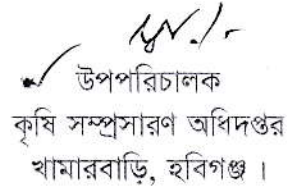 উপপরিচালক
কৃষি সম্প্রসারণ অধিদপ্তর
খামারবাড়ি, হবিগঞ্জ ।